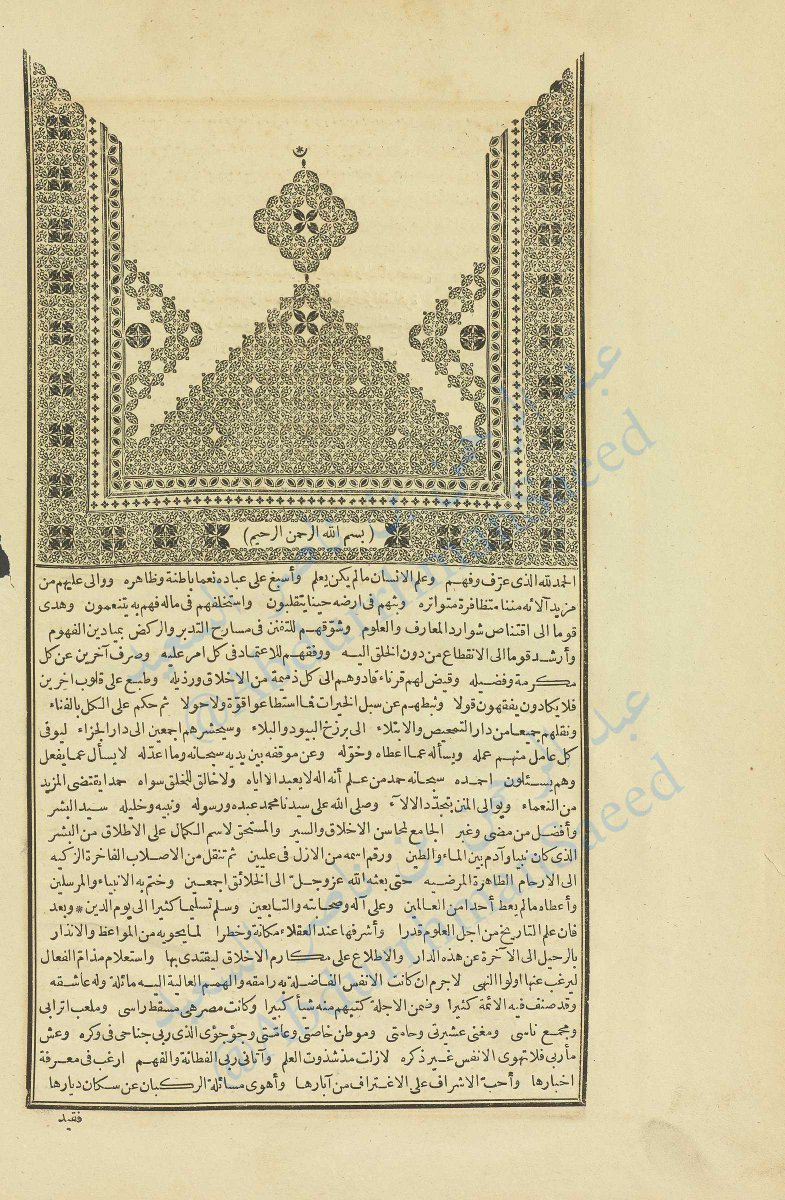 (بسم الله الرحمن الرحيم)
الحمد لله الذى عرّف وفهم وعلم الانسان مالم يكن يعلم وأسبغ على عباده نعما باطنة وظاهره ووالى عليهم من
مزيد آلائه مننا متظافرة متواتره وبثهم فى ارضه حينا يتقلبون واستخلفهم فى ماله فهم به يتنعمون وهدى
قوما الى اقتناص شوارد المعارف والعلوم وشوّقهم للتفنن فى مسارح التدبر والركض بميادين الفهوم
وأرشد قوما الى الانقطاع من دون الخلق اليه ووفقهم للاعتماد فى كل امر عليه وصرف آخرين عن كل
مكرمة وفضيله وقيض لهم قرناء قادوهم الى كل ذميمة من الاخلاق ورذيله وطبع على قلوب اخرين
فلا يكادون يفقهون قولا وثبطهم عن سبل الخيرات فما استطاعوا قوّة ولا حولا ثم حكم على الكل بالفناء
ونقلهم جميعا من دار التمحيص والابتلاء الى برزخ البيود والبلاء وسيحشرهم اجمعين الى دار الجزاء ليوفى
كل عامل منهم عمله ويسأله عما اعطاه وخوّله وعن موقفه بين يديه سبحانه وما اعدّله لا يسأل عما يفعل
وهم يسئلون احمده سبحانه حمد من علم أنه اله لا يعبد الا اياه ولا خالق للخلق سواه حمدا يقتضى المزيد
من النعماء ويوالى المنن بتجدّد الآلاء وصلى الله على سيدنا محمد عبده ورسوله ونبيه وخليله سيد البشر
وأفضل من مضى وغبر الجامع لمحاسن الاخلاق والسير والمستحق لاسم الكمال على الاطلاق من البشر
الذى كان نبيا وآدم بين الماء والطين ورقم اسمه من الازل فى عليين ثم تنقل من الاصلاب الفاخرة الزكيه
الى الارحام الطاهرة المرضيه حتى بعثه الله عز وجل الى الخلائق اجمعين وختم به الانبياء والمرسلين
وأعطاه مالم يعط أحدا من العالمين وعلى آله وصحابته والتابعين وسلم تسليما كثيرا الى يوم الدين * وبعد
فان علم التاريخ من اجل العلوم قدرا وأشرفها عند العقلاء مكانة وخطرا لما يحويه من المواعظ والانذار
بالرحيل الى الآخرة عن هذه الدار والاطلاع على مكارم الاخلاق ليقتدى بها واستعلام مذامّ الفعال
ليرغب عنها اولوا النهى لا جرم ان كانت الانفس الفاضلة به رامقه والهمم العالية اليه مائلة وله عاشقه
وقد صنف فيه الائمة كثيرا وضمن الاجلة كتبهم منه شيأ كبيرا وكانت مصر هى مسقط راسى وملعب اترابى
ومجمع ناسى ومغنى عشيرتى وحامتى وموطن خاصتى وعامّتى وجؤجؤى الذى ربى جناحى فى وكره وعش
مأربى فلا تهوى الانفس غير ذكره لازلت مذ شذوت العلم وآتانى ربى الفطانة والفهم ارغب فى معرفة
اخبارها وأحب الاشراف على الاغتراف من آبارها وأهوى مسائلة الركبان عن سكان ديارها
فقيد
@Abdurrahmahsaeed
@Abdurrahmahsaeed